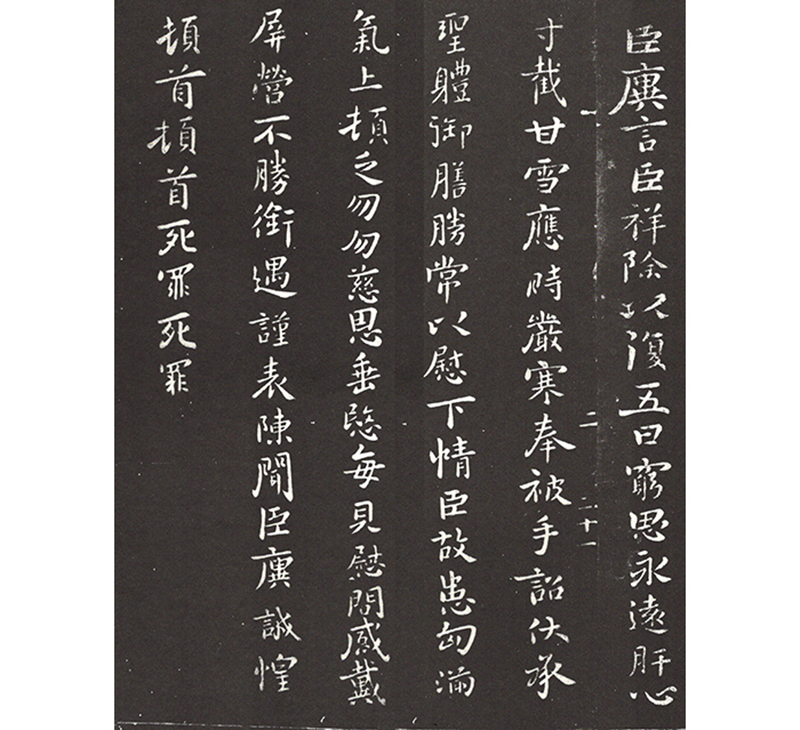 臣廙言臣祥除以復五日窮思永遠肝心
二 二十一
寸截甘雪應時嚴寒奉被手詔伏承
聖體御膳勝常以慰下情臣故患匈滿
氣上頓乏勿勿慈恩垂愍每見慰問感戴
屏營不勝銜遇謹表陳聞臣廙誠惶
頓首頓首死罪死罪